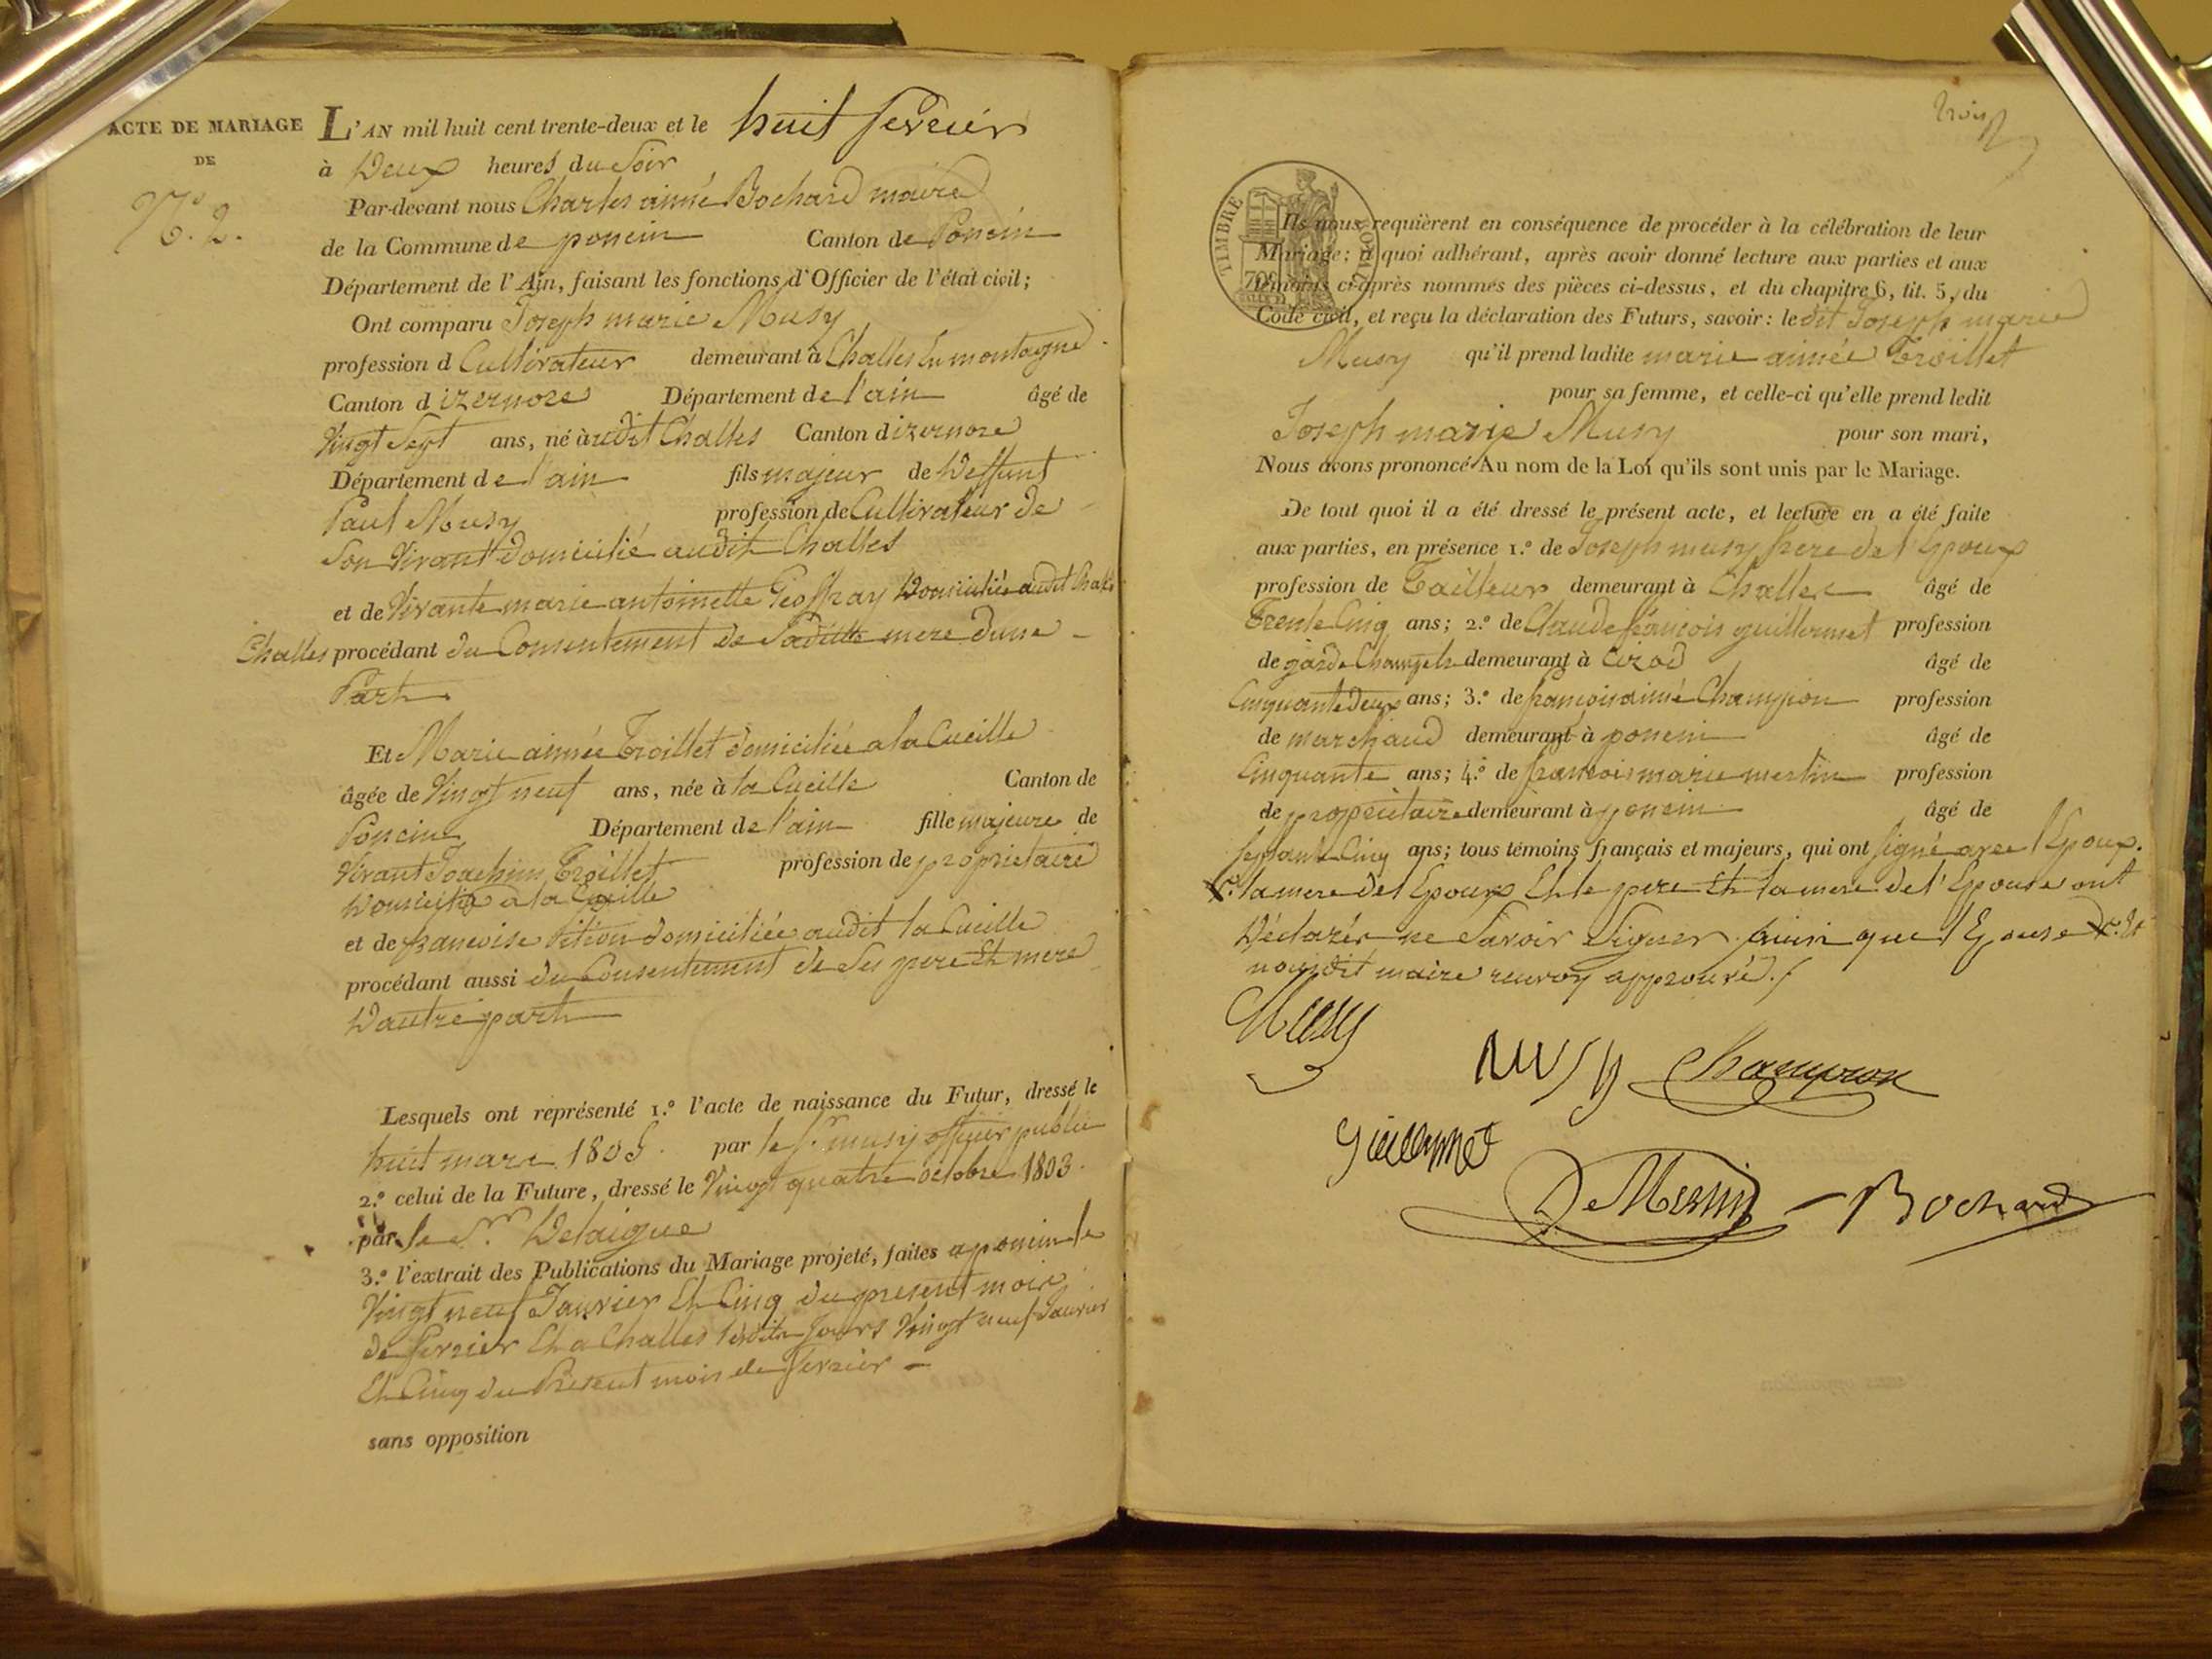 ACTE DE MARIAGE
DE
N.º 2.
L'AN mil huit cent trente-deux et le huit fevrier
à Deux heures du Soir
Par-devant nous Charles aimé Bochard maire
de la Commune de poncin Canton de Poncin
Département de l'Ain, faisant les fonctions d'Officier de l'état civil;
Ont comparu Joseph marie Musy
profession d Cultivateur demeurant à Challes la montagne
Canton d izernore Département de l'ain âgé de
Vingt Sept ans, né àudit Challes Canton d izernore
Département de l'ain fils majeur de Deffunt
Paul Musy profession de Cultivateur de
Son Vivant domicilié audit Challes
et de Vivante marie antoinette Geoffray Domiciliée audit
Challes procédant du Consentement de Sadite mere Dune
Part
Et Marie aimée Troillet domiciliée a la Cueille
âgée de Vingt neuf ans, née à la Cueille Canton de
Poncin Département de l'ain fille majeure de
Vivant Joachim Troillet profession de propriétaire
Domicilié a la Cueille
et de francoise Pition domiciliée audit la Cueille
procédant aussi du Consentement de Ses pere Et mere
Dautre part
Lesquels ont représenté 1.º l'acte de naissance du Futur, dressé le
huit mars 1805. par le Sr musy officier public
2.º celui de la Future, dressé le Vingt quatre octobre 1803.
par le Sr Delaigue
3.º l'extrait des Publications du Mariage projeté, faites a poncin le
Vingt neuf Janvier Et Cinq du present mois
de fevrier Et a Challes lesdits Jours Vingt neuf Janvier
Et Cinq du Present mois de fevrier
sans opposition
trois
TIMBRE ROYAL
70c
Ils nous requièrent en conséquence de procéder à la célébration de leur
Mariage; à quoi adhérant, après avoir donné lecture aux parties et aux
témoins ci-après nommés des pièces ci-dessus, et du chapitre 6, tit. 5, du
Code civil, et reçu la déclaration des Futurs, savoir: ledit Joseph marie
Musy qu'il prend ladite marie aimée Troillet
pour sa femme, et celle-ci qu'elle prend ledit
Joseph marie Musy pour son mari,
Nous avons prononcé Au nom de la Loi qu'ils sont unis par le Mariage.
De tout quoi il a été dressé le présent acte, et lecture en a été faite
aux parties, en présence 1.º de Joseph musy frere de l'Epoux
profession de Tailleur demeurant à Challes âgé de
Trente Cinq ans; 2.º de Claude françois guillermet profession
de garde Champetre demeurant à Cizod âgé de
Cinquante deux ans; 3.º de francois aimé Champion profession
de marchand demeurant à poncin âgé de
Cinquante ans; 4.º de francois marie merlin profession
de propriétaire demeurant à poncin âgé de
Septante Cinq ans; tous témoins français et majeurs, qui ont signé avec l'Epoux.
la mere de l'Epoux Et le pere Et la mere de l'Epouse ont
Déclarés ne Savoir Signer ainsi que l'Epouse Et
nousdit maire renvoy approuvé.
Musy
MUSY Champion
Guillermet
DeMerlin Bochard